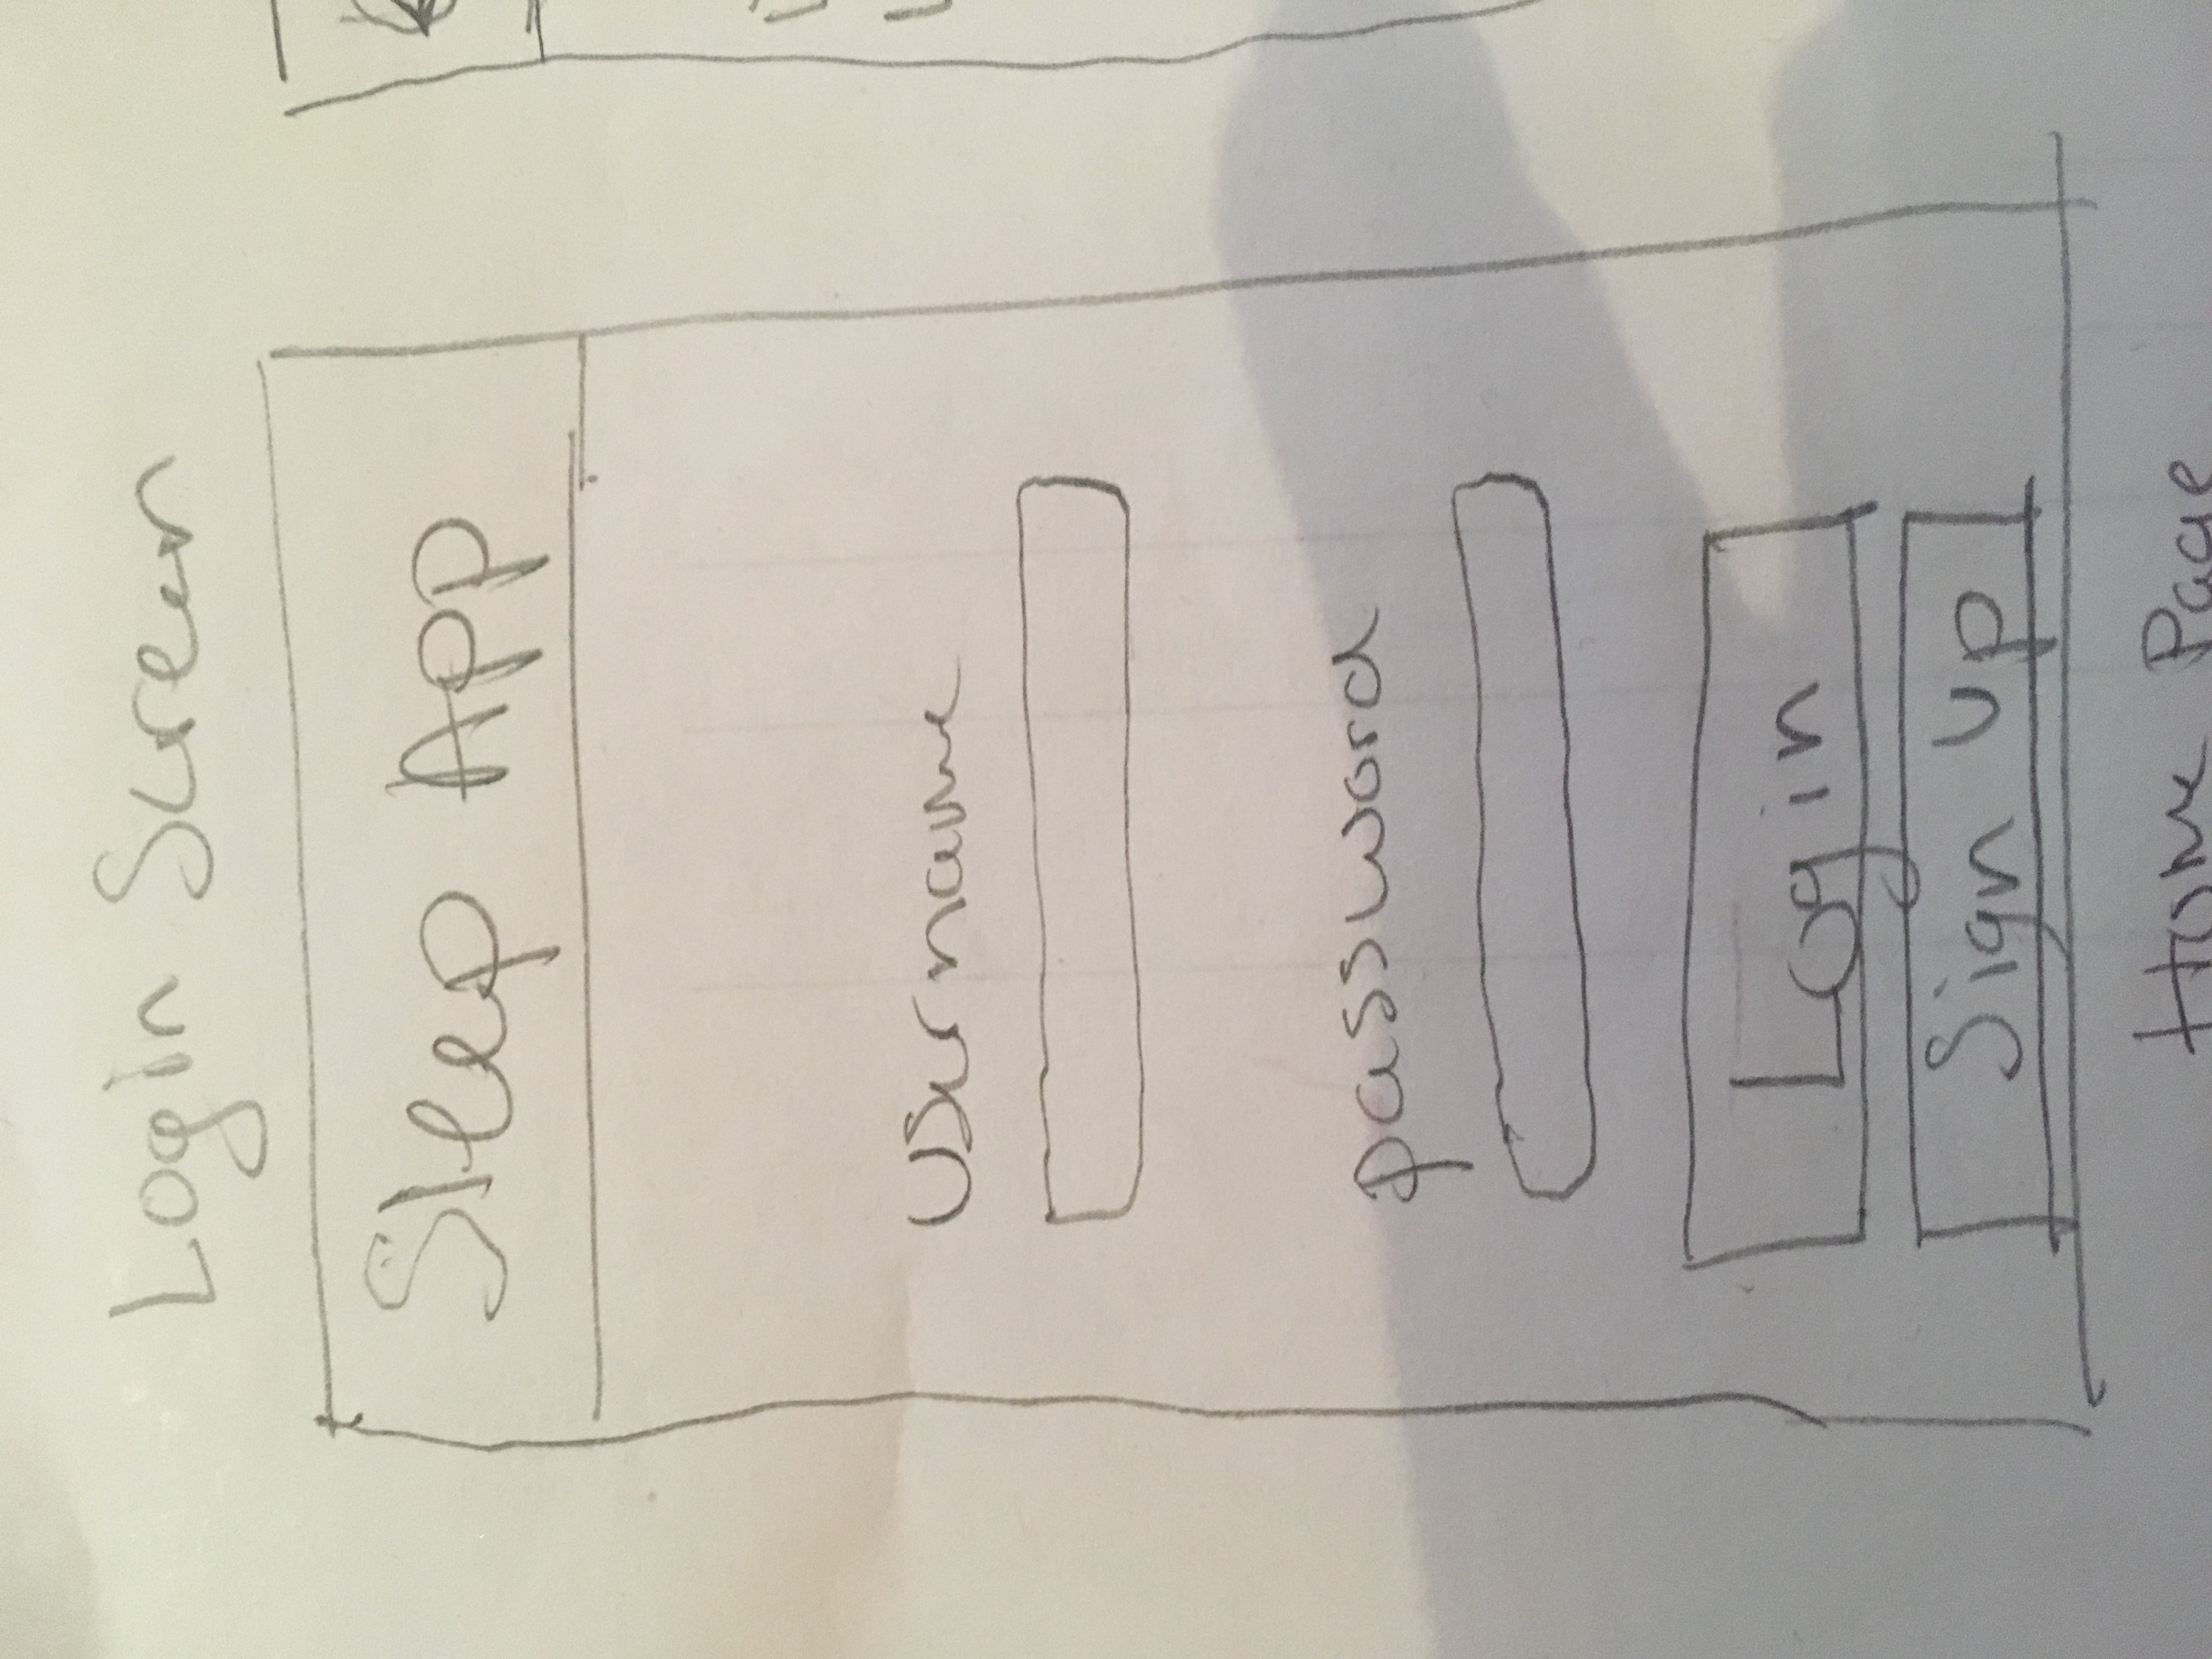 Login Screen
Sleep App
username
password
Login
Sign Up
Home Page